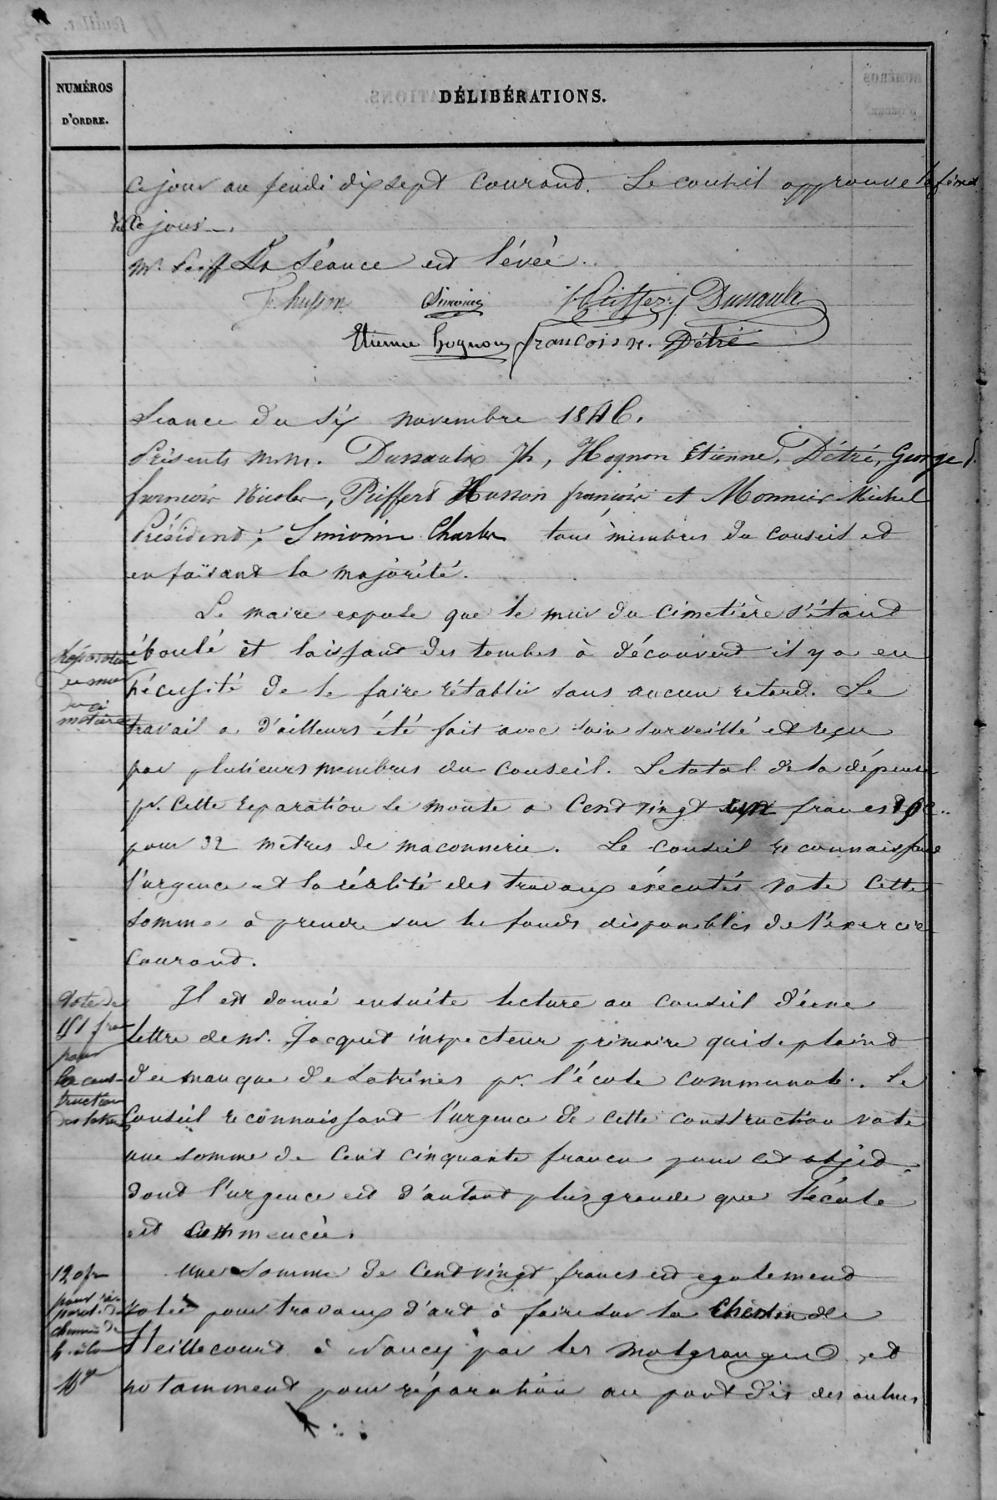 NUMÉROS
D'ORDRE.
DÉLIBÉRATIONS.
ce jour au jeudi dix sept courand. Le conseil approuve
de ce jour.
Mr. La Séance est lévée.
F. husson Simonin Pfeiffer Dussaulx
Etienne hognon francois n. Détré
Séance du Six novembre 1846.
Présents M.M. Dussaulx Jh, Hognon Etienne, Détré, George J.
francois Nicolas, Peiffert Husson françois et Monnier Michel
Président ; Simonin Charles tous mêmbres du conseil et
en faisant la majôrité.
Le maire expose que le mur du Cimetière s'étand
éboulé et laissand des tombes à découverd il y a eu
nécessité de le faire rétablir sans aucun retard. Le
travail a d'ailleurs été fait avec soin surveillé et reçu
par plusieurs membres du Conseil. Le total de la dépense
pr. cette reparation se monte a Cend vingt francs
pour 32 metres de maconnerie. Le Conseil reconnaissand
l'urgence et la réalité des travaux éxécutés vote cette
somme à prendre sur les fonds disponibles de l'exercice
Courand.
Réparation
au mur
du ci
metière
Il est donné ensuite lecture au conseil d'une
lettre de Mr. Jacquet inspecteur primaire qui se plaind
du manque de Latrines pr. l'école communale. Le
Conseil reconnaissand l'urgence de cette construction vote
une somme de Cent cinquante francs pour cet objed,
dond l'urgence est d'autant plus grande que l'école
est commencée.
Vote de
151 fr
pour
la cons-
truction
des latrines
Une Somme de Cend vingt francs est egalemend
votée pour travaux d'ard à faire sur le Chemin de
Heillecourd à Nancy par les malgrangers, et
notammend pour réparation au pont dis des aulnes
120 fr
pour ré-
paration
chemin de